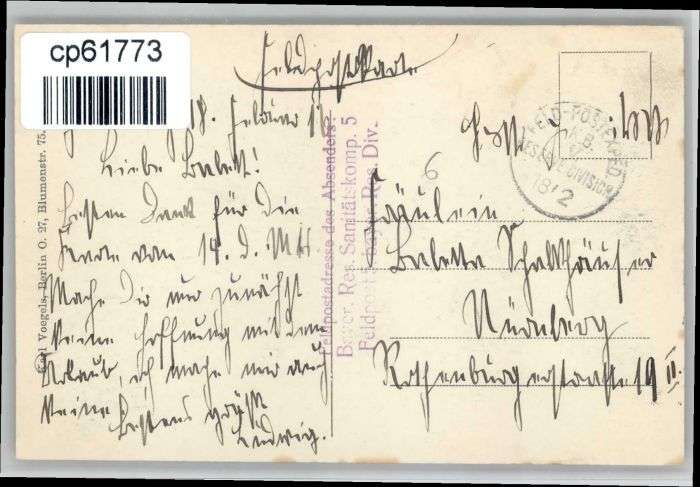 cp61773
Feldpostkarte
18. Februar
Liebe Babett!
Besten Dank für die
Karte vom 14. d. Mts
Mache Dir nur zunächst
keine Hoffnung mit dem
Urlaub, ich mache mir auch
keine
Bestens grüßt
Ludwig.
Karl Voegels, Berlin O. 27, Blumenstr. 75.
Feldpostadresse des Absenders:
Bayer. Res. Sanitätskomp. 5
Res. Div.
FELD-POSTEXPED
K.B.
RESERVE-DIVISION
18/2
6
Fräulein
Babette Schallhäuser
Nürnberg
Rothenburgerstraße 19 II.